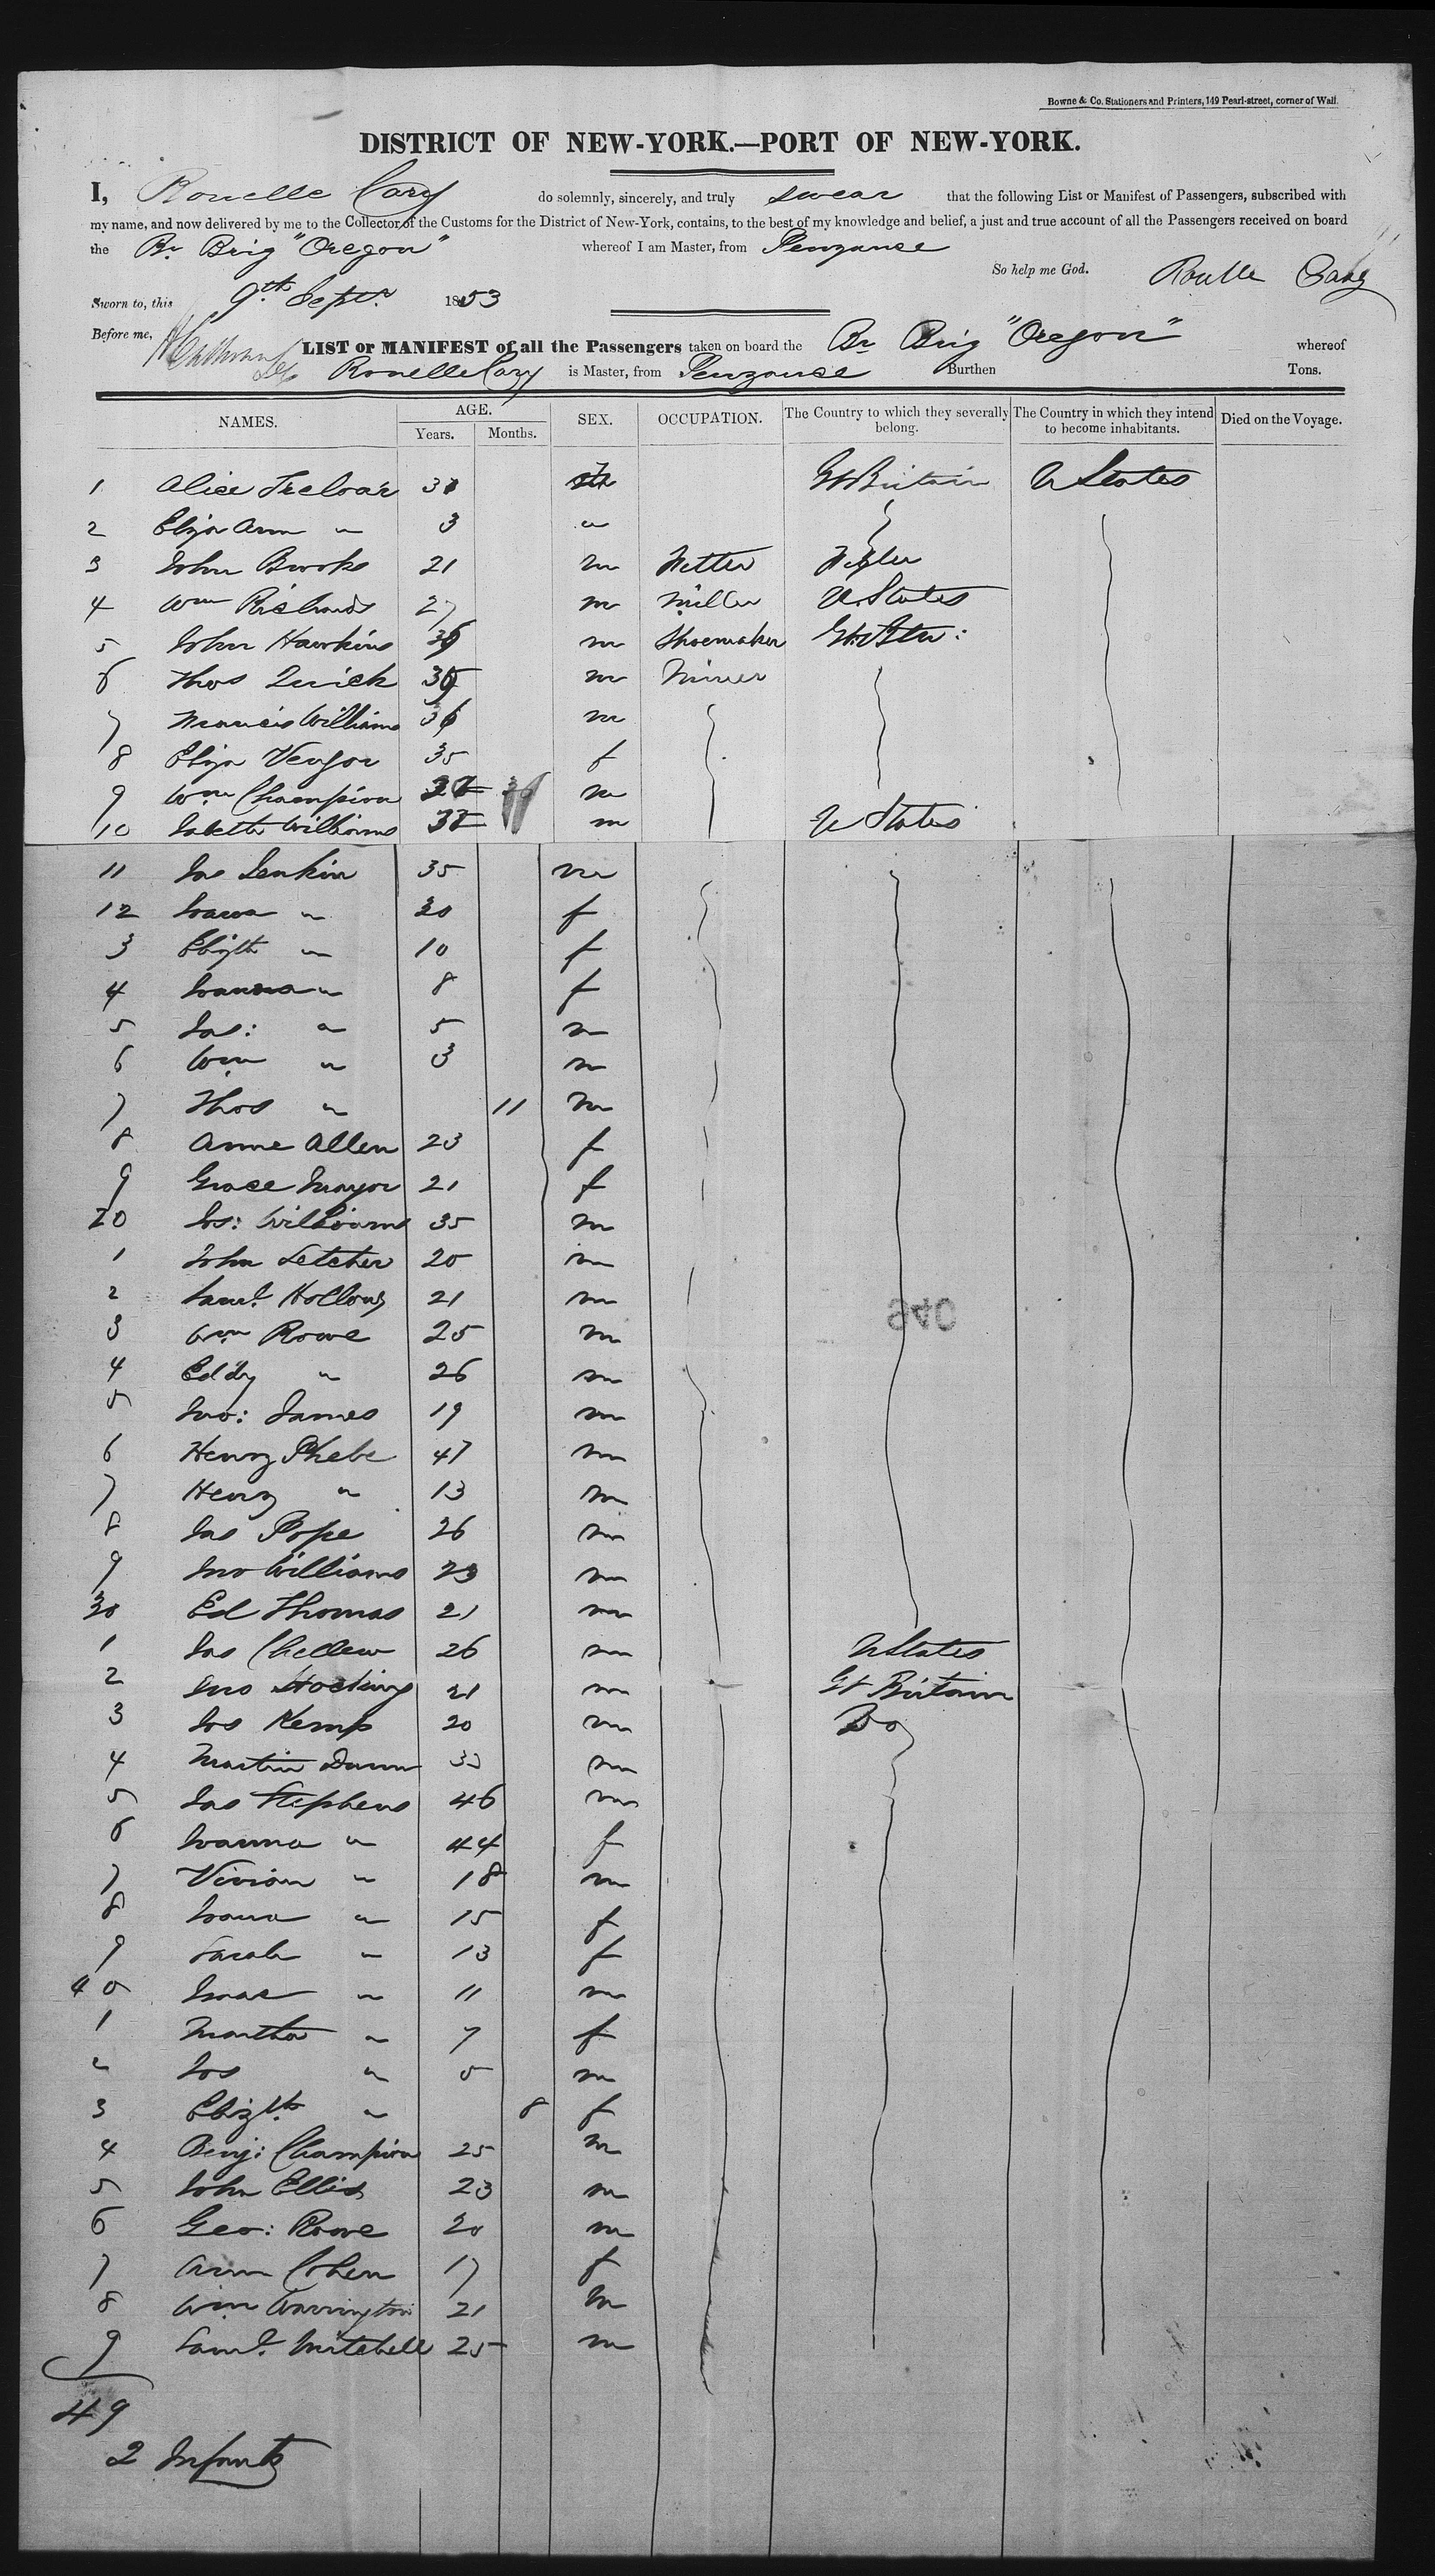 Bowne & Co. Stationers and Printers, 149 Pearl-street, corner of Wall.
DISTRICT OF NEW-YORK.—PORT OF NEW-YORK.
I, Rouelle Cary do solemnly, sincerely, and truly swear that the following List or Manifest of Passengers, subscribed with
my name, and now delivered by me to the Collector of the Customs for the District of New-York, contains, to the best of my knowledge and belief, a just and true account of all the Passengers received on board
the Br. Brig "Oregon" whereof I am Master, from Penzance
So help me God.
Sworn to, this 9th Septr. 1853
Before me,
LIST or MANIFEST of all the Passengers taken on board the Br Brig "Oregon" whereof
Rouelle Cary is Master, from Penzance Burthen Tons.
NAMES. AGE. SEX. OCCUPATION. The Country to which they severally belong. The Country in which they intend to become inhabitants. Died on the Voyage.
Years. Months.
1 Alice Treloar 31 Gt Britain U States
2 Eliza Ann " 3 "
3 John Brooks 21 m
4 Wm Richards 27 m Miller U. States
5 John Hawkins m Shoemaker
6 Thos Quick m Miner
7 Francis Williams m
8 Eliza 35 f
9 Wm Champion m
10 Williams m U States
11 Jas Jenkin 35 m
12 " 30 f
3 Elizth " 10 f
4 Joanna " 8 f
5 Jas: " 5 m
6 Wm " 3 m
7 Thos " 11 m
8 Anne Allen 23 f
9 Grace Mayor 21 f
20 Jos: Williams 35 m
1 John Letcher 20 m
2 Saml. Hollow 21 m
3 Wm Rowe 25 m
4 Eddy " 26 m
5 Jno: James 19 m
6 Henry Phebe 47 m
7 Henry " 13 m
8 Jas Pope 26 m
9 Jno Williams 23 m
30 Ed Thomas 21 m
1 Jas Chellew 26 m U States
2 Jno Hocking 21 m Gt Britain
3 Jos Kemp 20 m Do
4 Martin Dunn m
5 Jas Stephens 46 m
6 Joanna " 44 f
7 Vivian " 18 m
8 " 15 f
9 Sarah " 13 f
40 Isaac " 11 m
1 Martha " 7 f
2 Jos " 5 m
3 Elizth " 8 f
4 Benj: Champion 25 m
5 John Ellis 23 m
6 Geo: Rowe 20 m
7 Ann Cohen 17 f
8 Wm Warrington 21 m
9 Saml. Mitchell 25 m
49
2 Infants